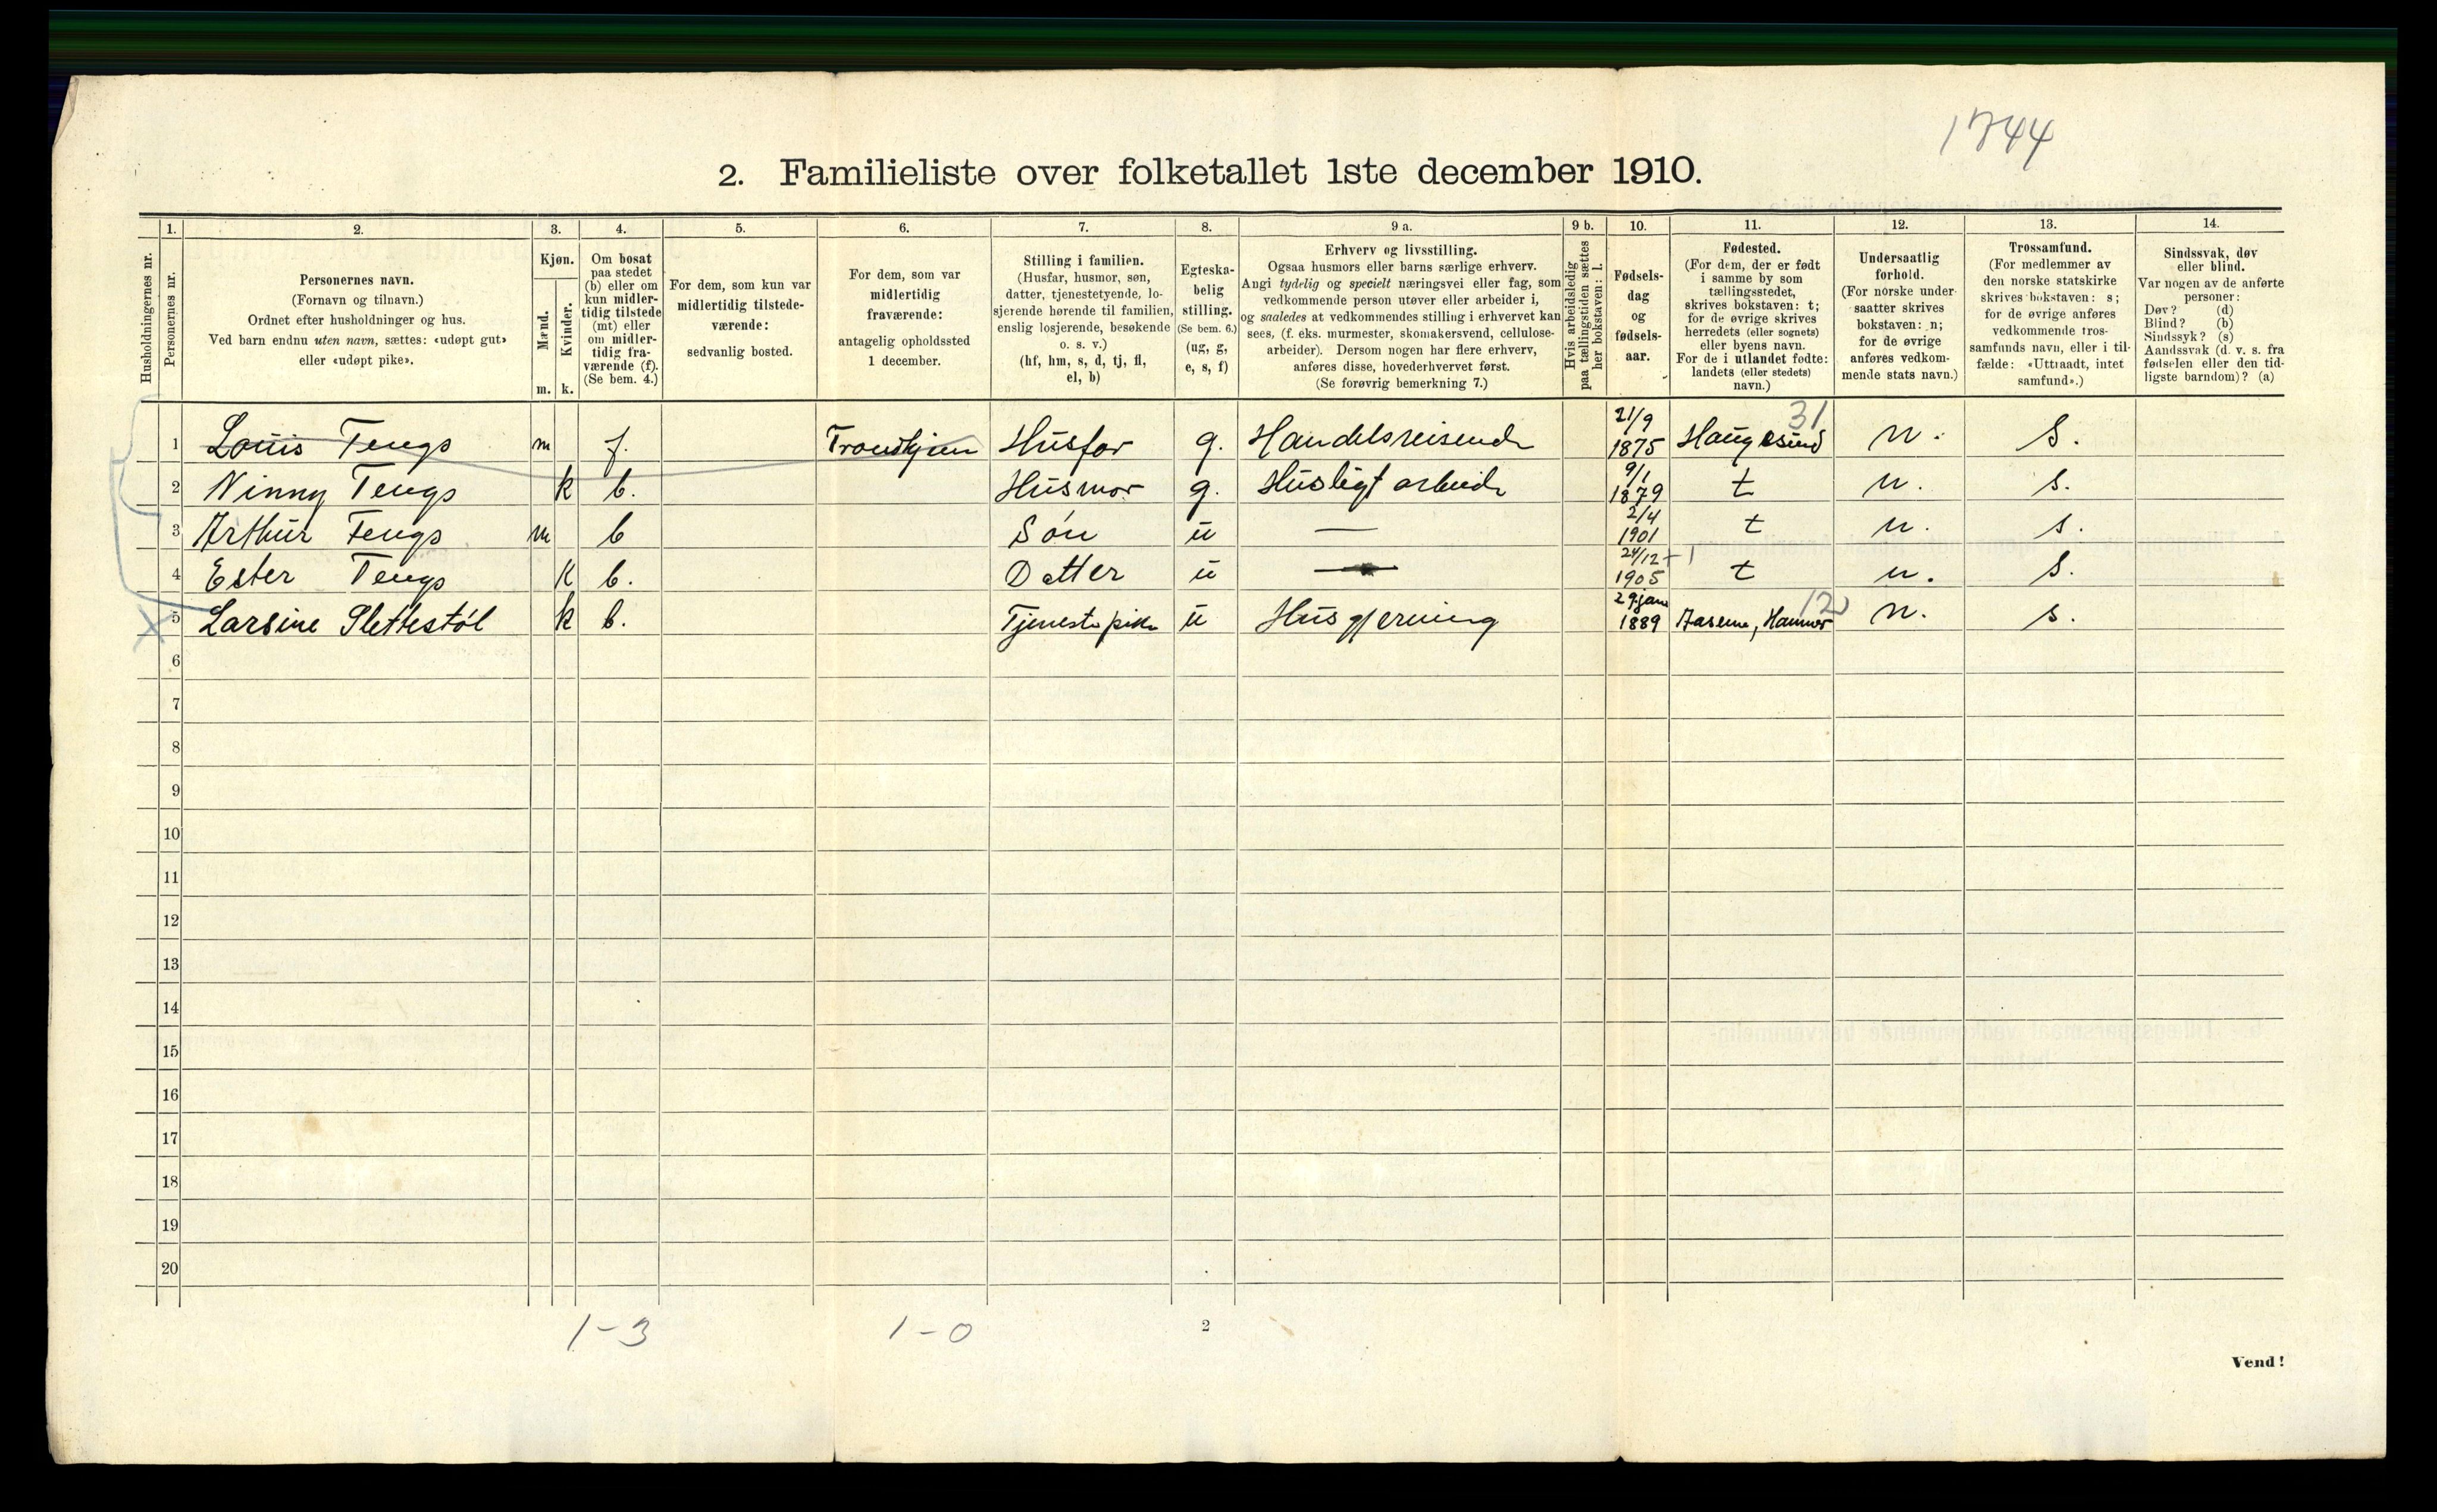 1744
2. Familieliste over folketallet 1ste december 1910.
Husholdningernes nr.
1.
Personernes nr.
2.
Personernes navn.
(Fornavn og tilnavn.)
Ordnet efter husholdninger og hus.
Ved barn endnu uten navn, sættes: «udøpt gut»
eller «udøpt pike».
3.
Kjøn.
Mænd.
Kvinder.
m. k.
4.
Om bosat
paa stedet
(b) eller om
kun midler-
tidig tilstede
(mt) eller
om midler-
tidig fra-
værende (f).
(Se bem. 4.)
5.
For dem, som kun var
midlertidig tilstede-
værende:
sedvanlig bosted.
6.
For dem, som var
midlertidig
fraværende:
antagelig opholdssted
1 december.
7.
Stilling i familien.
(Husfar, husmor, søn,
datter, tjenestetyende, lo-
sjerende hørende til familien,
enslig losjerende, besøkende
o. s. v.)
(hf, hm, s, d, tj, fl,
el, b)
8.
Egteska-
belig
stilling.
(Se bem. 6.)
(ug, g,
e, s, f)
9 a.
Erhverv og livsstilling.
Ogsaa husmors eller barns særlige erhverv.
Angi tydelig og specielt næringsvei eller fag, som
vedkommende person utøver eller arbeider i,
og saaledes at vedkommendes stilling i erhvervet kan
sees, (f. eks. murmester, skomakersvend, cellulose-
arbeider). Dersom nogen har flere erhverv,
anføres disse, hovederhvervet først.
(Se forøvrig bemerkning 7.)
9 b.
Hvis arbeidsledig
paa tællingstiden sættes
her bokstaven: l.
10.
Fødsels-
dag
og
fødsels-
aar.
11.
Fødested.
(For dem, der er født
i samme by som
tællingsstedet,
skrives bokstaven: t;
for de øvrige skrives
herredets (eller sognets)
eller byens navn.
For de i utlandet fødte:
landets (eller stedets)
navn.)
12.
Undersaatlig
forhold.
(For norske under-
saatter skrives
bokstaven: n;
for de øvrige
anføres vedkom-
mende stats navn.)
13.
Trossamfund.
(For medlemmer av
den norske statskirke
skrives bokstaven: s;
for de øvrige anføres
vedkommende tros-
samfunds navn, eller i til-
fælde: «Uttraadt, intet
samfund».)
14.
Sindssvak, døv
eller blind.
Var nogen av de anførte
personer:
Døv? (d)
Blind? (b)
Sindssyk? (s)
Aandssvak (d. v. s. fra
fødselen eller den tid-
ligste barndom)? (a)
1 Louis Tengs m f. Trondhjem Husfar g. Handelsreisende 21/9 1875 Haugesund 31 n. S.
2 Ninny Tengs k b. Husmor g. Husligt arbeide 9/1 1879 t n. s.
3 Arthur Tengs m b Søn u — 2/4 1901 t n. s.
4 Ester Tengs k b. Datter u — 24/12 1905 t n. s.
X 5 Larsine Slettestøl k b. Tjenestepike u Husgjerning 29.jan 1889 12 n. s.
6
7
8
9
10
11
12
13
14
15
16
17
18
19
20
1-3 1-0
2
Vend!